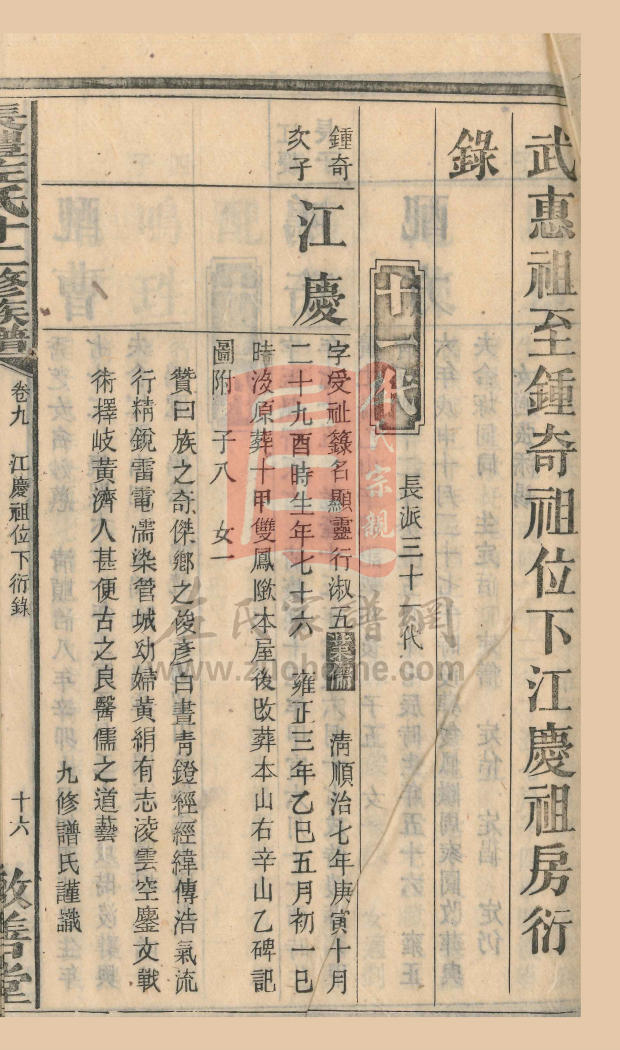 武惠祖至鍾奇祖位下江慶祖房衍
錄
十一代
長派三十一代
鍾奇
次子
江慶
字受祉籙名顯靈行淑五業儒 清順治七年庚寅十月
二十九酉時生年七十六 雍正三年乙巳五月初一巳
時沒原葬十甲雙鳳墩本屋後改葬本山右辛山乙碑記
圖附 子八 女一
贊曰族之奇傑鄉之俊彥白晝青鐙經經緯傳浩氣流
行精銳雷電濡染管城幼婦黃絹有志凌雲空鏖文戰
術擇岐黃濟人甚便古之良醫儒之道藝
九修譜氏謹識
左氏十二修族譜
卷九 江慶祖位下衍錄
十六
敦善堂
左氏宗親
左氏家譜網
www.zuohome.com